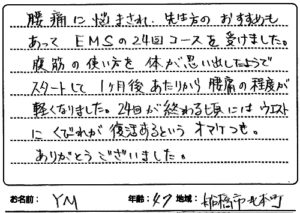 腰痛に悩まされ、先生方のおすすめも
あってEMSの24回コースを受けました。
腹筋の使い方を体が思い出したようで
スタートして1ヶ月後あたりから腰痛の程度が
軽くなりました。24回が終わる頃にはウエスト
にくびれが復活するというオマケつき。
ありがとうございました。
お名前: YM 年齢: 47 地域: 船橋市 本町